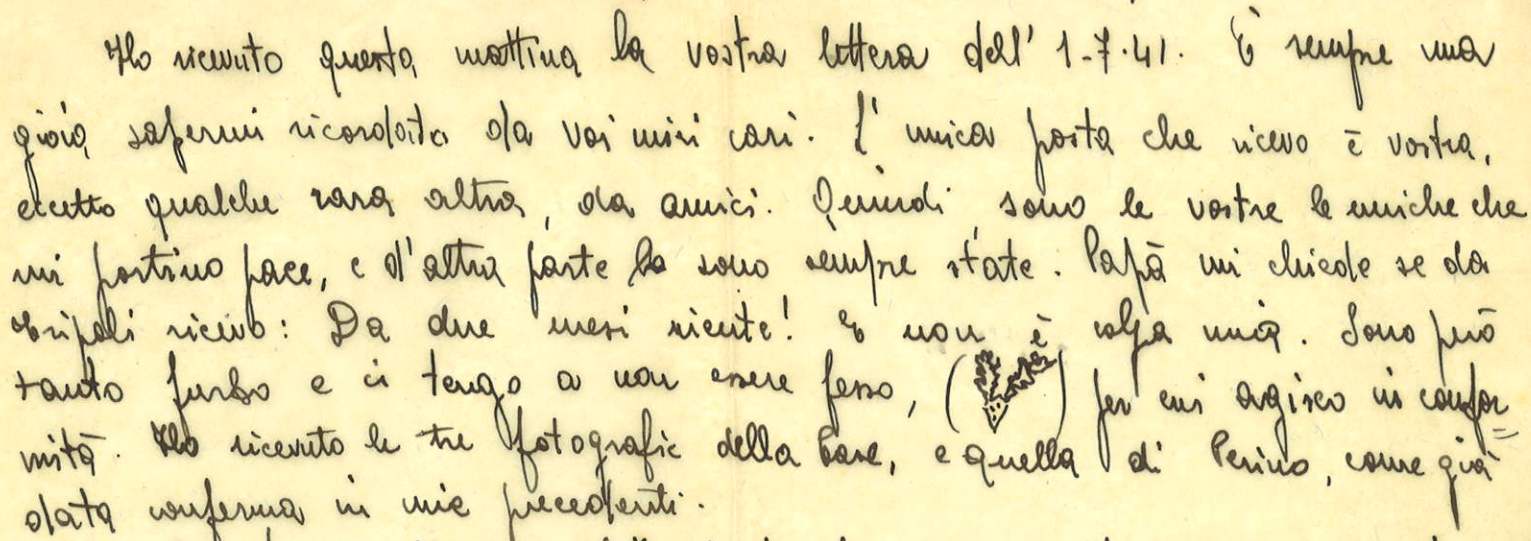 Ho ricevuto questa mattina la vostra lettera dell' 1-7-41. È sempre una
gioia sapermi ricordato da voi miei cari. L' unica posta che ricevo è vostra,
eccetto qualche rara altra, da amici. Quindi sono le vostre le uniche che
mi portino pace, e d'altra parte lo sono sempre state. Papà mi chiede se da
Tripoli ricevo: Da due mesi niente! E non è colpa mia. Sono però
tanto furbo e ci tengo a non essere fesso, ( ) per cui agisco in confor
mità. Ho ricevuto le tre fotografie della base, e quella di Perino, come già
data conferma in mie precedenti.